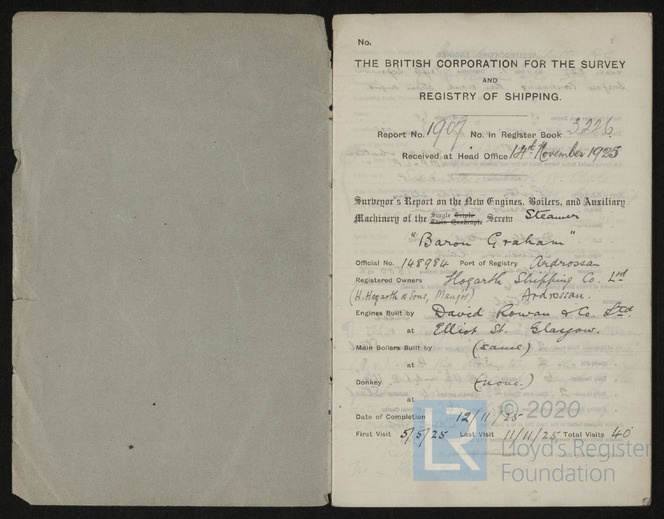 No.
THE BRITISH CORPORATION FOR THE SURVEY
AND
REGISTRY OF SHIPPING.
Report No. 1907 No. in Register Book 3226
Received at Head Office 14th November 1925
Surveyor's Report on the New Engines, Boilers, and Auxiliary
Machinery of the Single Triple Twin Quadruple Screw Steamer
"Baron Graham"
Official No. 148984 Port of Registry Ardrossan
Registered Owners Hogarth Shipping Co. Ltd
(H. Hogarth & Sons, Mangrs) Ardrossan.
Engines Built by David Rowan & Co. Ltd.
at Elliot St. Glasgow.
Main Boilers Built by (same)
at
Donkey (none.)
at
Date of Completion 12/11/25
First Visit 5/5/25 Last Visit 11/11/25 Total Visits 40
© 2020
LR
Lloyd's Register
Foundation